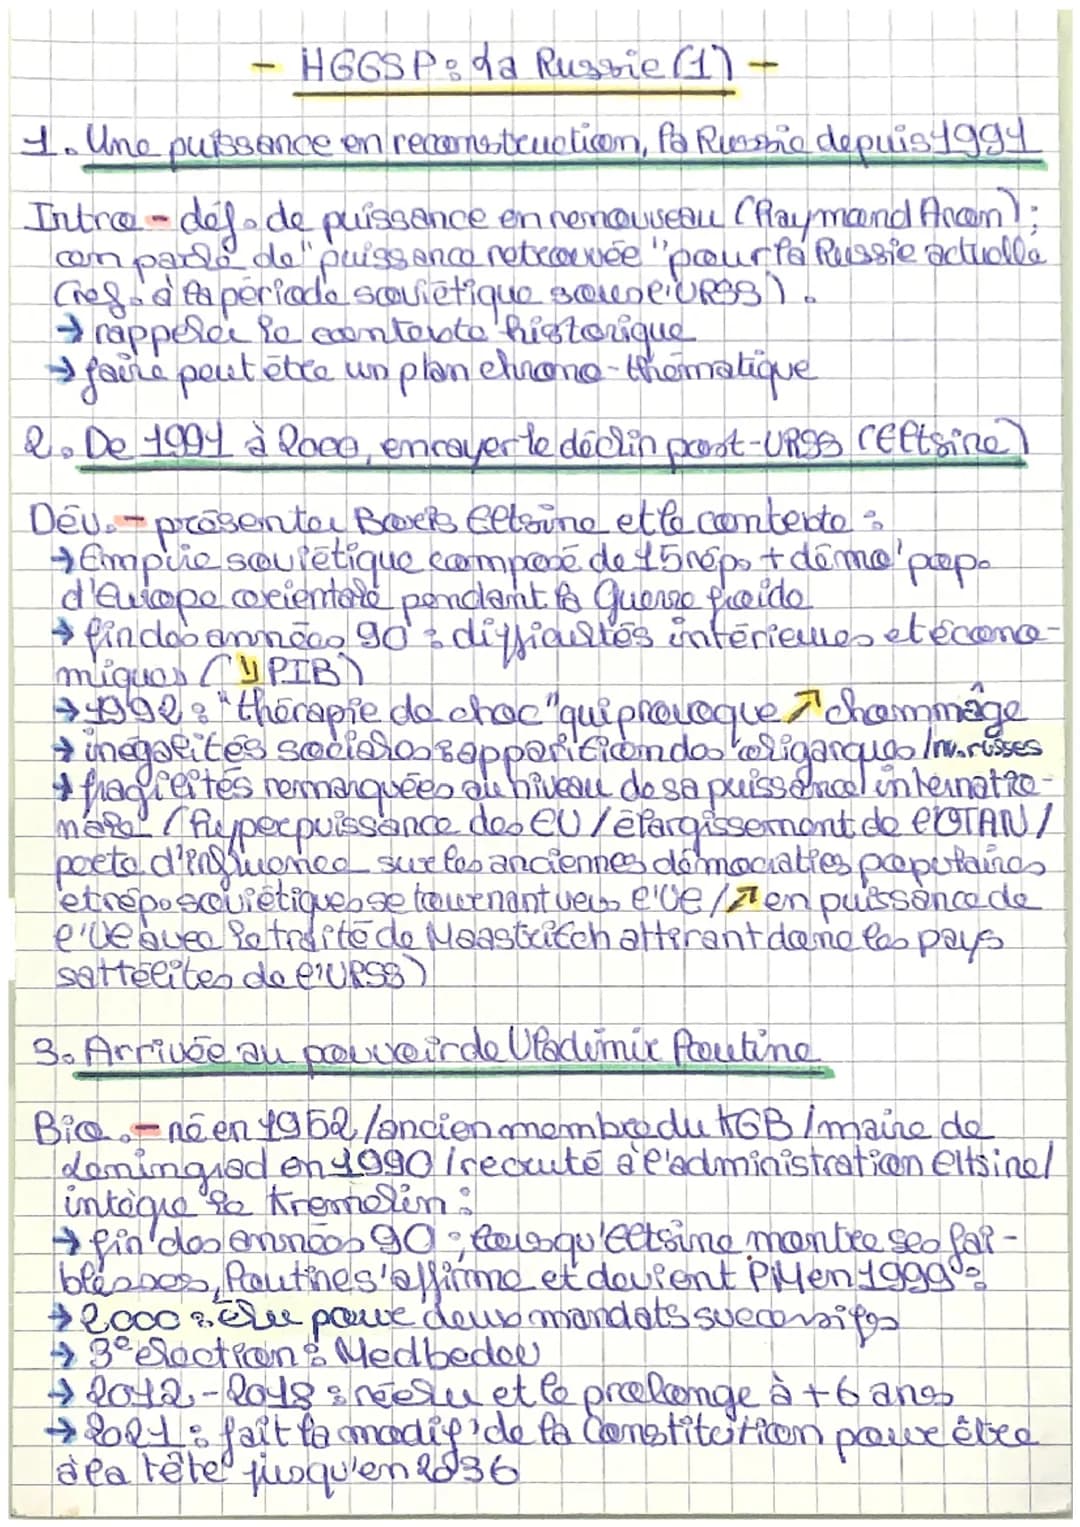 - HGGSP : La Russie (1) -
1. Une puissance en reconstruction, la Russie depuis 1991
Intro - déf. de puissance en renouveau (Raymond Aron) :
on parle de "puissance retrouvée" pour la Russie actuelle
(réf. à la période soviétique sous l'URSS).
→ rappeler le contexte historique
→ faire peut être un plan chrono-thématique
2. De 1991 à 2000, enrayer le déclin post-URSS (Eltsine)
Dév. - présenter Boris Eltsine et le contexte :
→ Empire soviétique composé de 15 rép. + démo' pop.
d'Europe orientale pendant la Guerre froide
→ fin des années 90 : difficultés intérieures et écono-
miques (↘ PIB)
→ 1992 : "thérapie de choc" qui provoque ↗ chômmage
→ inégalités sociales : apparition des oligarques / nv. russes
→ fragilités remarquées au niveau de sa puissance internatio-
nale (hyperpuissance des EU / élargissement de l'OTAN /
perte d'influence sur les anciennes démocraties populaires
et rép. soviétiques se tournant vers l'UE / ↗ en puissance de
l'UE avec le traité de Maastritch attirant dans les pays
sattélites de l'URSS)
3. Arrivée au pouvoir de Vladimir Poutine
Bio. - né en 1952 / ancien membre du KGB / maire de
Leningrad en 1990 / recruté à l'administration Eltsine /
intègre le Kremelin :
→ fin des années 90 : lorsqu'Eltsine montre ses fai-
blesses, Poutine s'affirme et devient PM en 1999 :
→ 2000 : élu pour deux mandats successifs
→ 3e élection : Medbedev
→ 2012 - 2018 : réélu et le prolonge à +6 ans
→ 2021 : fait la modif' de la Constitution pour être
à la tête jusqu'en 2036